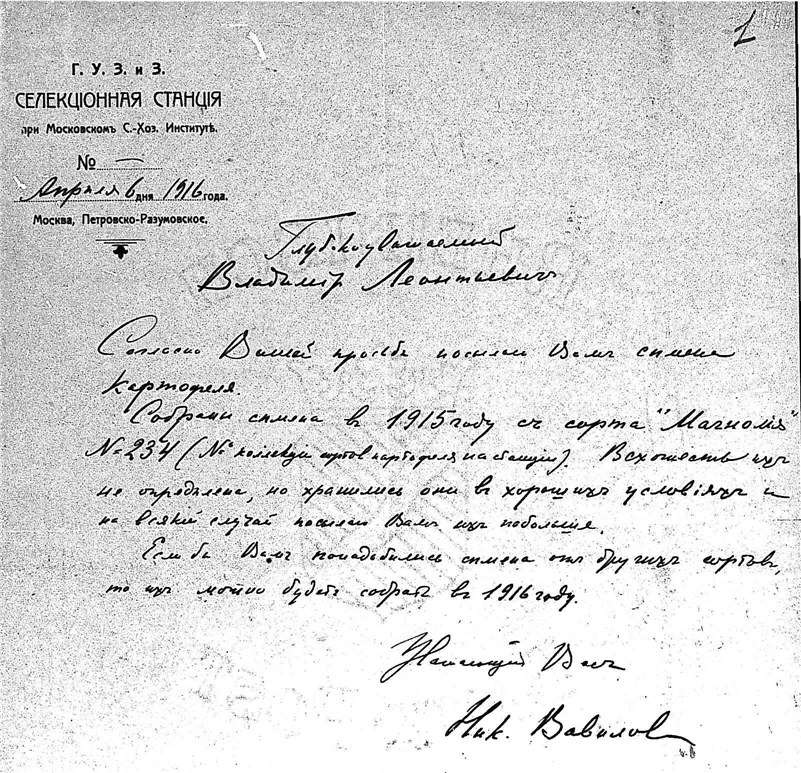 1
Г. У. З. и З.
СЕЛЕКЦІОННАЯ СТАНЦІЯ
при Московскомъ С.-Хоз. Институтѣ.
№ —
Апреля 6 дня 1916 года.
Москва, Петровско-Разумовское.
Глубокоуважаемый
Владиміръ Леонтьевичъ
Согласно Вашей просьбѣ посылаю Вамъ сѣмена
картофеля.
Собраны сѣмена въ 1915 году съ сорта "Магнолія"
№ 234 (№ коллекціи сортовъ картофеля на станціи). Всхожесть ихъ
не опредѣлена, но хранились они въ хорошихъ условіяхъ и
на всякій случай посылаю Вамъ ихъ побольше.
Если бы Вамъ понадобились сѣмена отъ другихъ сортовъ,
то ихъ можно будетъ собрать въ 1916 году.
Уважающій Васъ
Ник. Вавилов